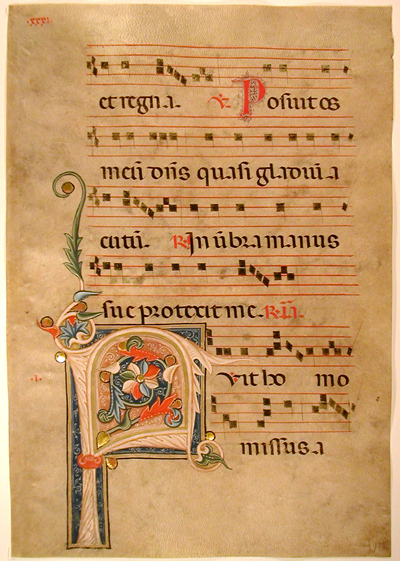 ·xxxi·
et regna. ℣. Posuit os
meū dn̄s quasi gladiū a
cutū. ℟. In ūbra manus
sue protexit me.
·i· Fuit ho mo
missus a